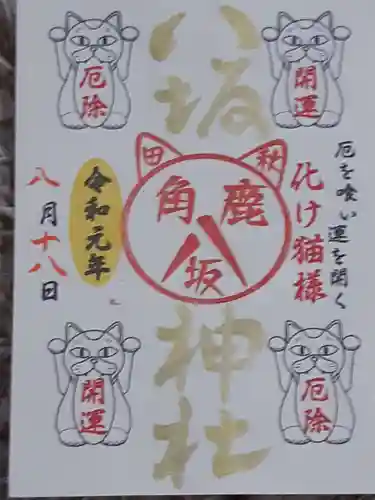 厄を喰い運を開く
化け猫様
開運
厄除
八坂神社
秋田
鹿角
八坂
厄除
開運
令和元年
八月十八日